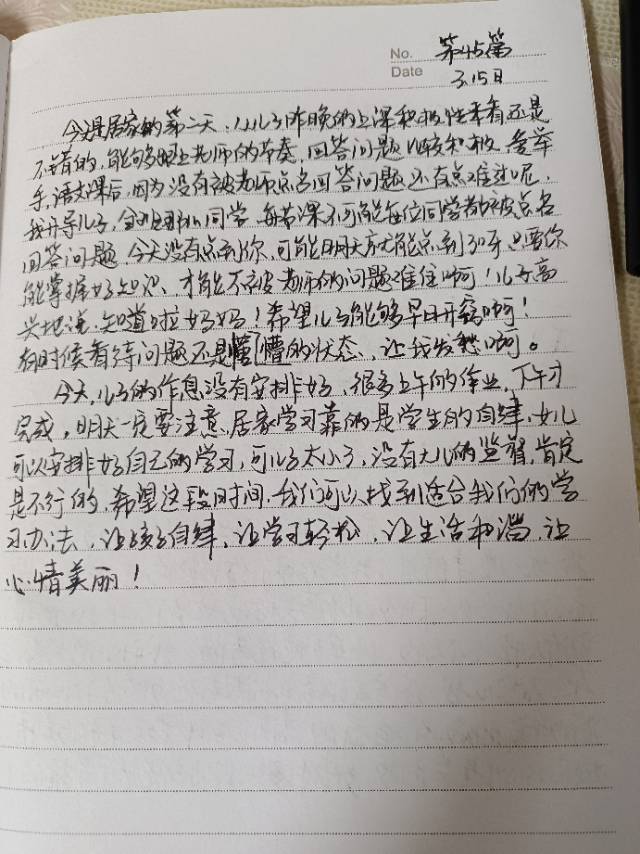 No. 第45篇
Date 3.15日
今天是居家的第二天,从儿子昨晚的上课积极性来看还是
不错的,能够跟上老师的节奏,回答问题比较积极,爱举
手,语文课后,因为没有被老师点名回答问题还有点难过呢,
我开导儿子,全班那么同学,每节课不可能每位同学都被点名
回答问题,今天没有点到你,可能明天就能点到了呀,只要你
能掌握好知识,才能不被老师的问题难住啊!儿子高
兴地说:知道啦妈妈!希望儿子能够早日开窍啊!
有时候看待问题还是懵懂的状态,让我发愁啊。
今天,儿子的作息没有安排好,很多上午的作业,下午才
完成,明天一定要注意,居家学习靠的是学生的自律,女儿
可以安排好自己的学习,可儿子太小了,没有大人的监督,肯定
是不行的,希望这段时间,我们可以找到适合我们的学
习办法,让孩子自律,让学习轻松,让生活和谐,让
心情美丽!